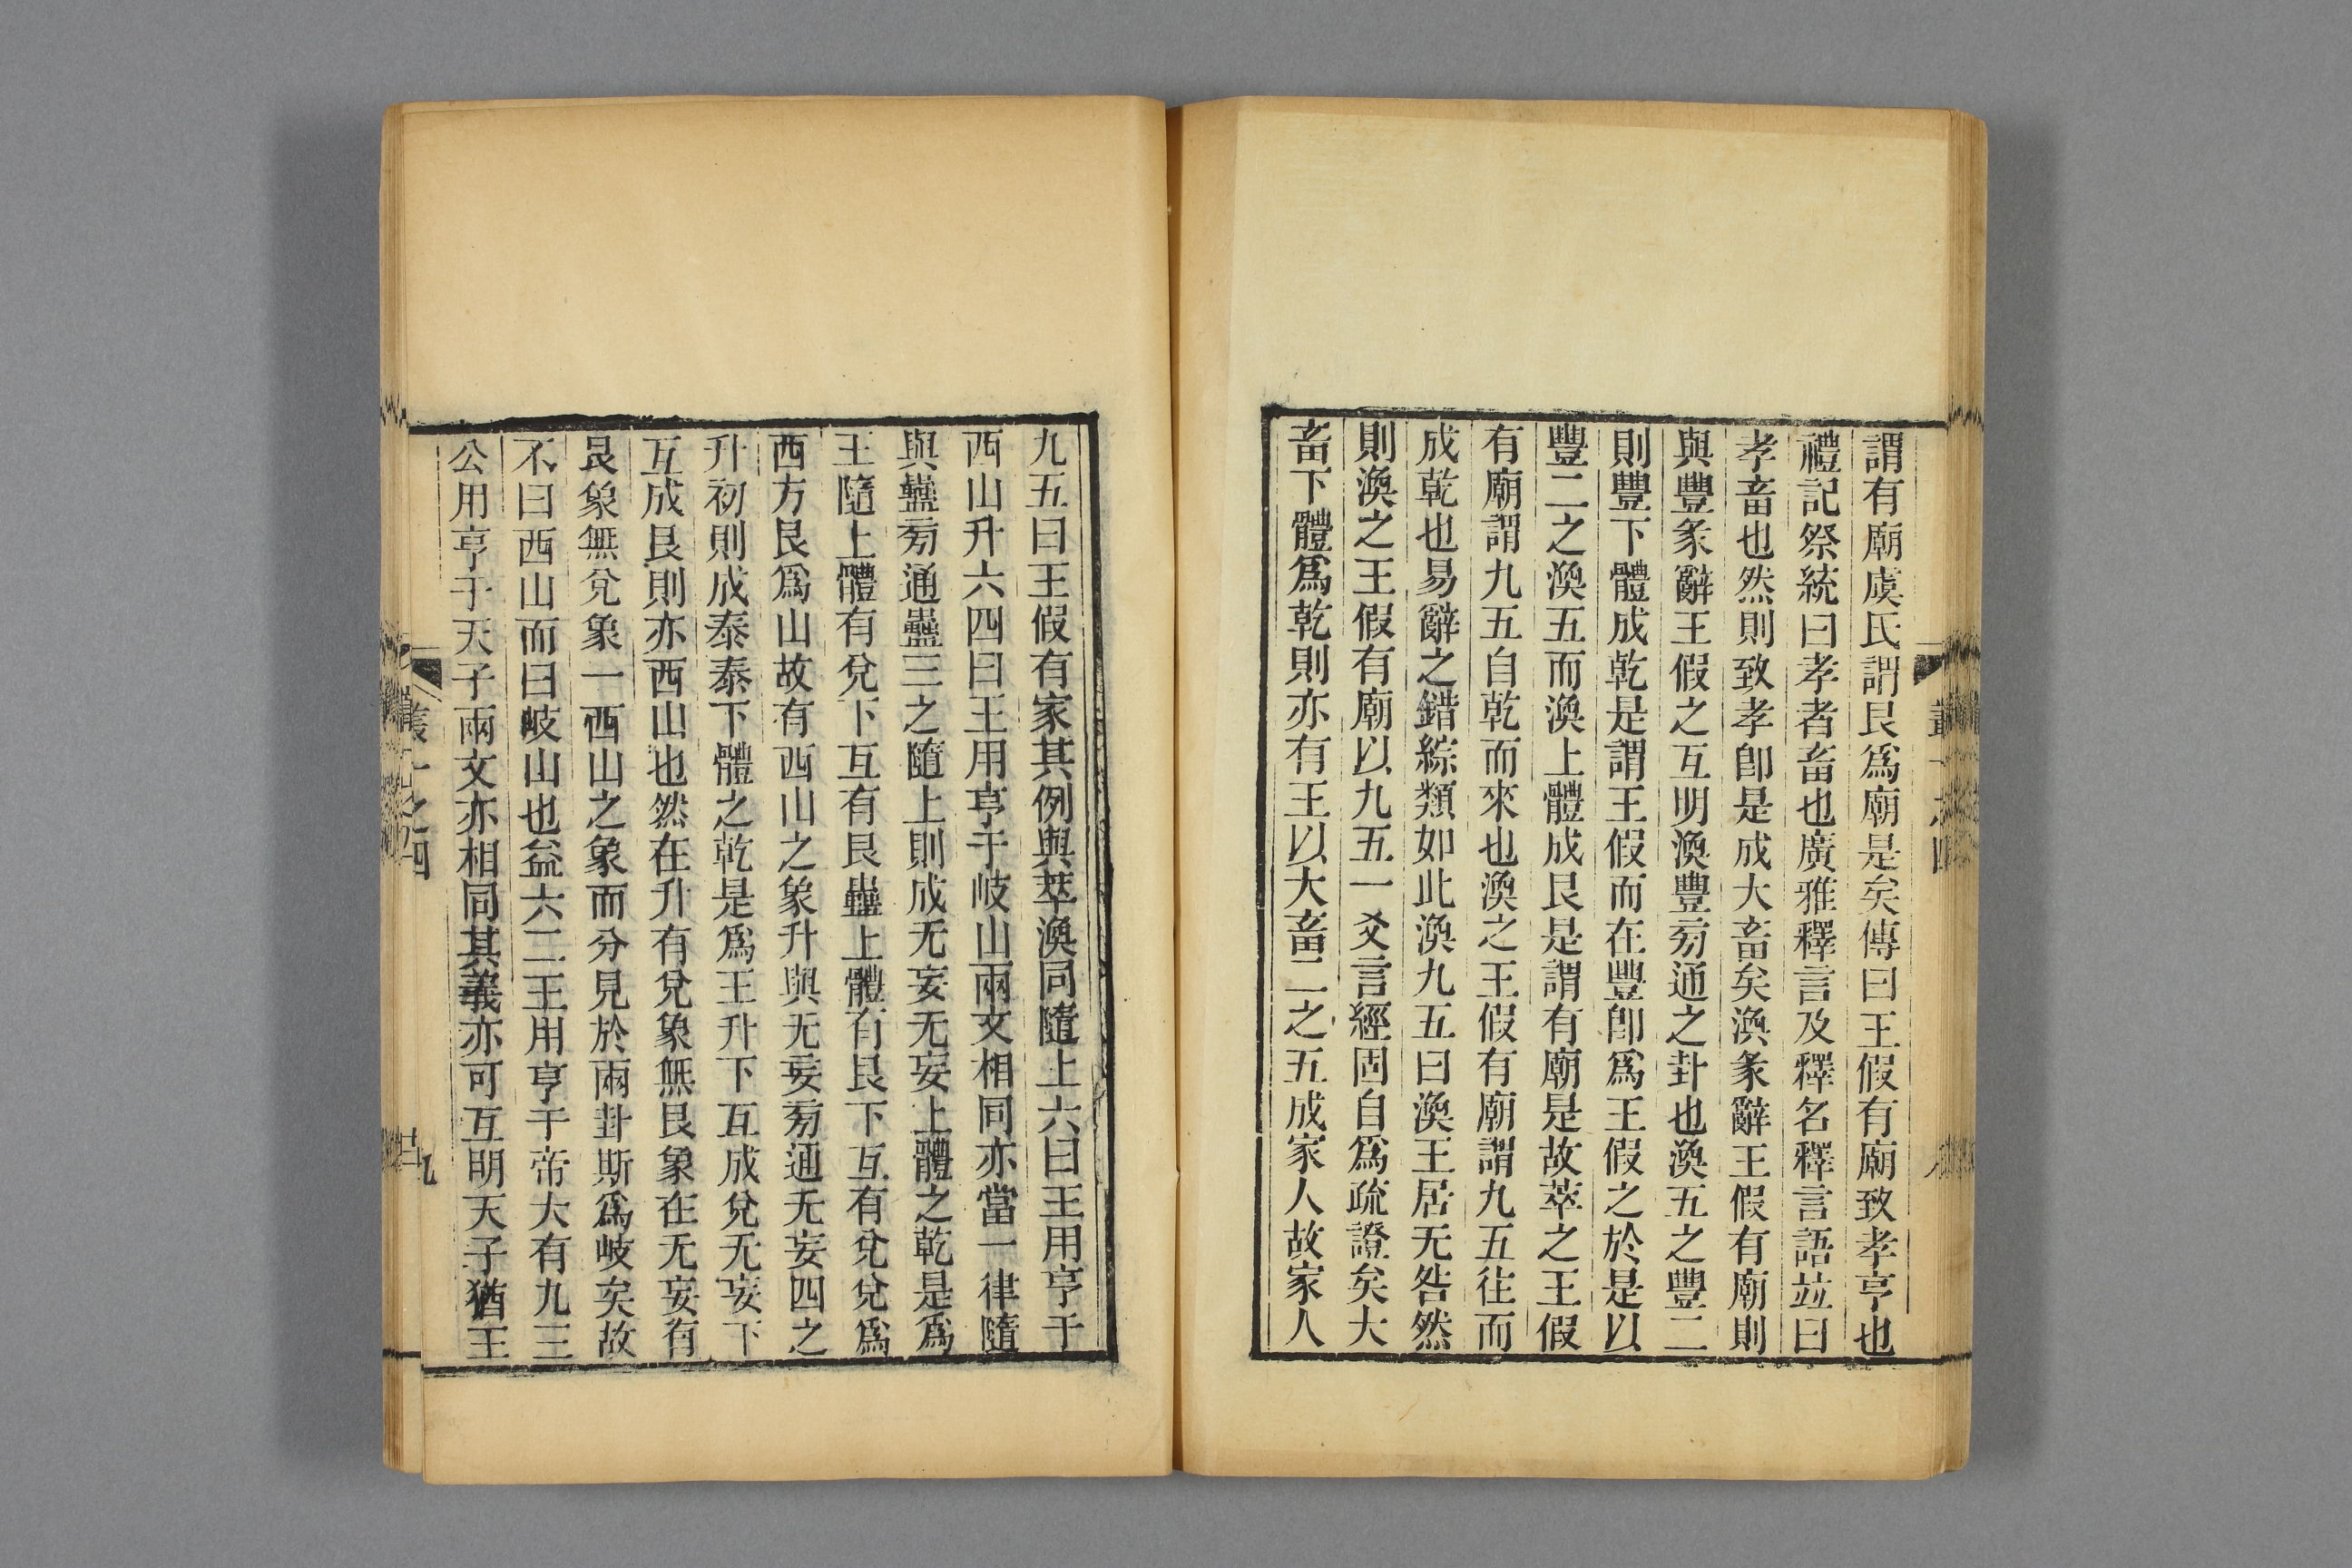 謂有廟虞氏謂艮爲廟是矣傳曰王假有廟致孝亨也
禮記祭統曰孝者畜也廣雅釋言及釋名釋言語竝曰
孝畜也然則致孝卽是成大畜矣渙彖辭王假有廟則
與豐彖辭王假之互明渙豐旁通之卦也渙五之豐二
則豐下體成乾是謂王假而在豐卽爲王假之於是以
豐二之渙五而渙上體成艮是謂有廟是故萃之王假
有廟謂九五自乾而來也渙之王假有廟謂九五往而
成乾也易辭之錯綜類如此渙九五曰渙王居无咎然
則渙之王假有廟以九五一爻言經固自爲疏證矣大
畜下體爲乾則亦有王以大畜二之五成家人故家人
九五曰王假有家其例與萃渙同隨上六曰王用亨于
西山升六四曰王用亨于岐山兩文相同亦當一律隨
與蠱旁通蠱三之隨上則成无妄无妄上體之乾是爲
王隨上體有兌下互有艮蠱上體有艮下互有兌兌爲
西方艮爲山故有西山之象升與无妄旁通无妄四之
升初則成泰泰下體之乾是爲王升下互成兌无妄下
互成艮則亦西山也然在升有兌象無艮象在无妄有
艮象無兌象一西山之象而分見於兩卦斯爲岐矣故
不曰西山而曰岐山也益六二王用亨于帝大有九三
公用亨于天子兩文亦相同其義亦可互明天子猶王